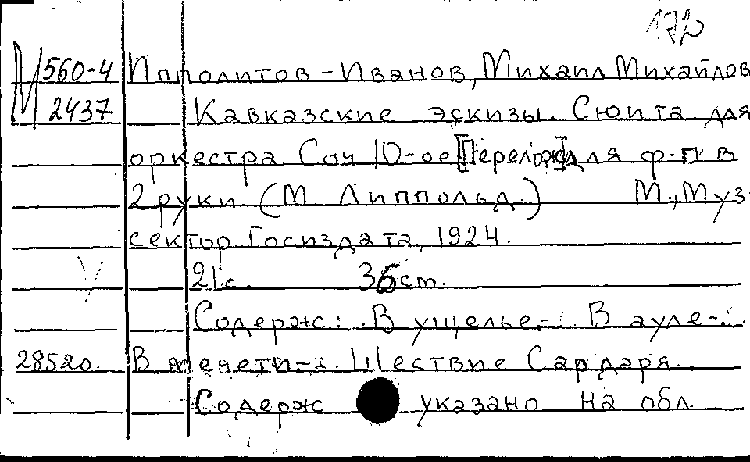 172
М 560-4 Ипполитов-Иванов, Михаил Михайлов
2437 Кавказские эскизы. Сюита для
оркестра Соч 10-ое [Перелож.] для ф-п в
2 руки (М Липпольд.) М., Муз
сектор Госиздата, 1924.
21 с. 35 cm.
Содерж: В ущелье.-. В ауле-.
28520. В мечети-. Шествие Сардаря.
Содерж указано на обл